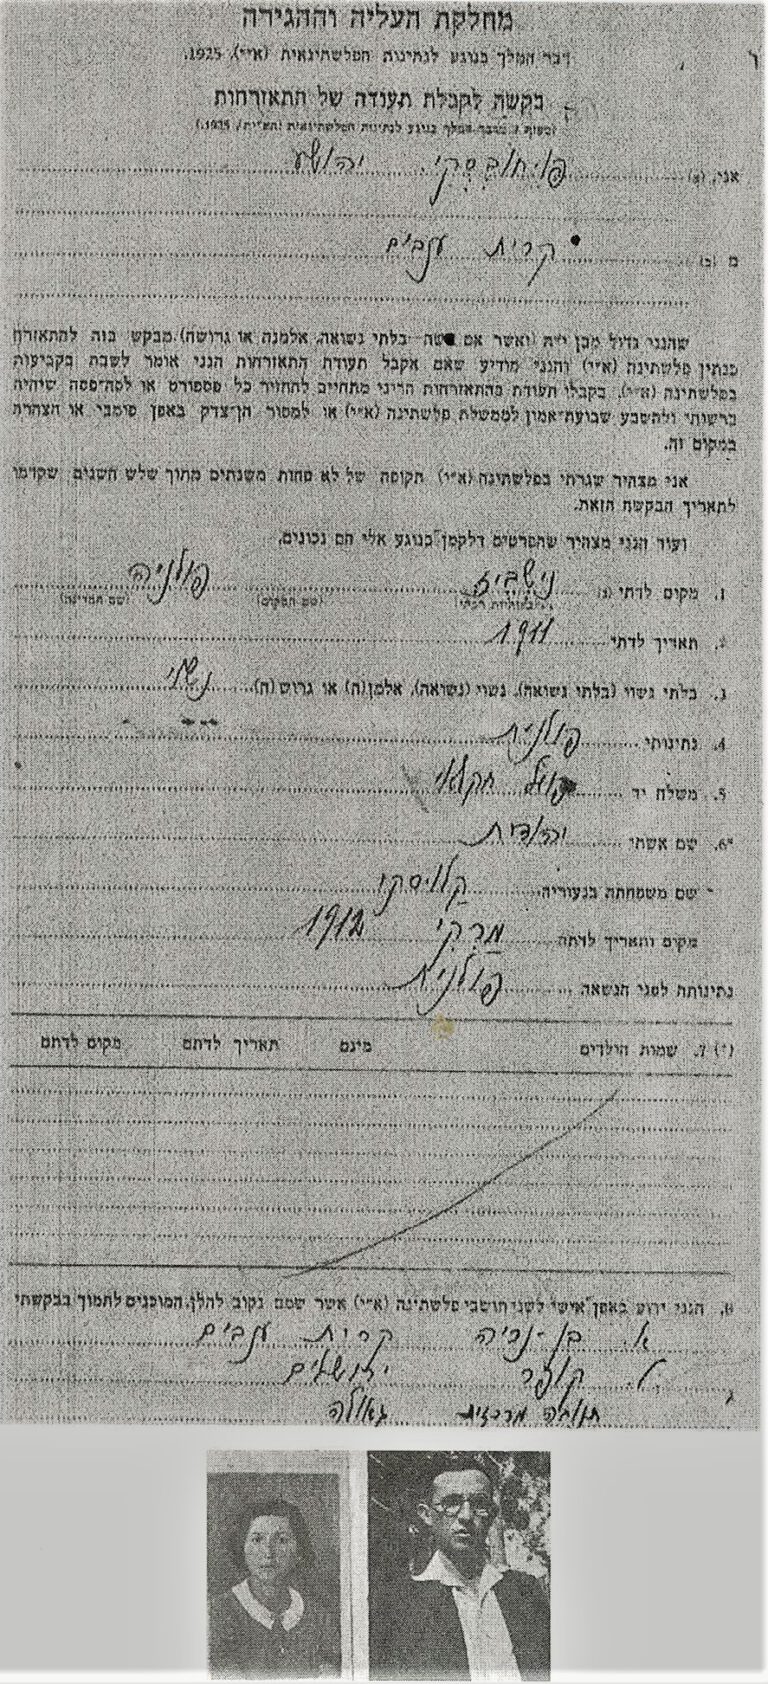 מחלקת העליה וההגירה
דבר המלך בנוגע לנתינות הפלשתינאית (א״י), 1925.
בקשה לקבלת תעודה של התאזרחות
אני, (א) יהושע
מ (ב) קרית ענבים
שהנני גדול מבן י״ח (ואשר אם אשה בלתי נשואה, אלמנה או גרושה) מבקש בזה להתאזרח
כנתין פלשתינה (א״י) והנני מודיע שאם אקבל תעודת התאזרחות הנני אומר לשבת בקביעות
בפלשתינה (א״י). בקבלי תעודת בהתאזרחות הריני מתחייב להחזיר כל פספורט או לסה־פסה שיהיה
ברשותי ולהשבע שבועת־אמון לממשלת פלשתינה (א״י) או למסור הן־צדק באפן פומבי או הצהרת
במקום זה.
אני מצהיר שגרתי בפלשתינה (א״י) תקופה של לא פחות משנתים מתוך שלש השנים שקדמו
לתאריך הבקשה הזאת.
ועוד הנני מצהיר שהפרטים דלקמן בנוגע אלי הם נכונים.
1. מקום לדתי נישביז פולניה
(שם המקום) (שם המדינה)
2. תאריך לדתי 1911
3. בלתי נשוי (בלתי נשואה), נשוי (נשואה), אלמן(ה) או גרוש(ה) נשוי
4. נתינותי פולנית
5. משלח יד פועל חקלאי
6. שם אשתי יהודית
שם משפחתה בנעוריה
מקום ותאריך לדתה 1912
נתינותה לפני הנשאה פולנית
7. שמות הילדים מינם תאריך לדתם מקום לדתם
8. הנני ידוע באפן אישי לשני תושבי פלשתינה (א״י) אשר שמם נקוב להלן, המוכנים לתמוך בבקשתי
א. קרית ענבים
ירושלים
תנובה מרכזית גאולה